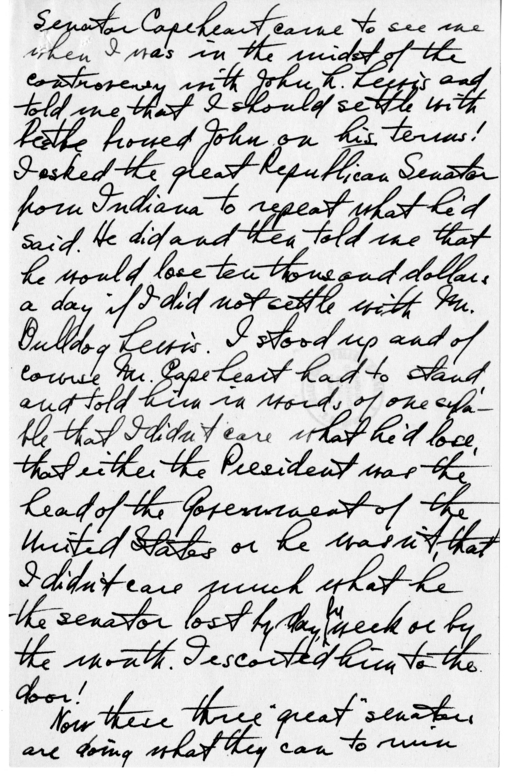 Senator Capeheart came to see me
when I was in the midst of the
controversy with John L. Lewis and
told me that I should settle with
beetle browed John on his terms!
I asked the great Republican Senator
from Indiana to repeat what he'd
said. He did and then told me that
he would lose ten thousand dollars
a day if I did not settle with Mr.
Bulldog Lewis. I stood up and of
course Mr. Capeheart had to stand,
and told him in words of one sylla-
ble that I didn't care what he'd lose,
that either the President was the
head of the Government of the
United States or he wasn't, that
I didn't care much what he
the senator lost by day, by week or by
the month. I escorted him to the
door!
Now these three "great" senators
are doing what they can to ruin